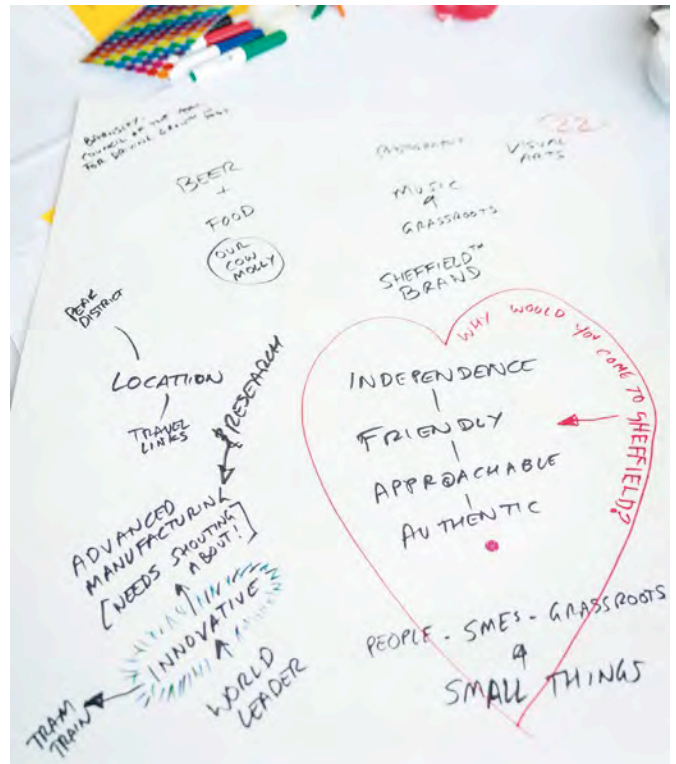 BARNSLEY
COUNCIL OF THE YEAR
FOR DRIVING GROWTH
BEER
+
FOOD
OUR
COW
MOLLY
VISUAL
ARTS
MUSIC
&
GRASSROOTS
SHEFFIELD™
BRAND
PEAK
DISTRICT
LOCATION
TRAVEL
LINKS
RESEARCH
ADVANCED
MANUFACTURING
[NEEDS SHOUTING
ABOUT!]
INNOVATIVE
WORLD
LEADER
TRAM
TRAIN
WHY WOULD YOU COME TO SHEFFIELD?
INDEPENDENCE
FRIENDLY
APPROACHABLE
AUTHENTIC
PEOPLE - SMES - GRASSROOTS
&
SMALL THINGS